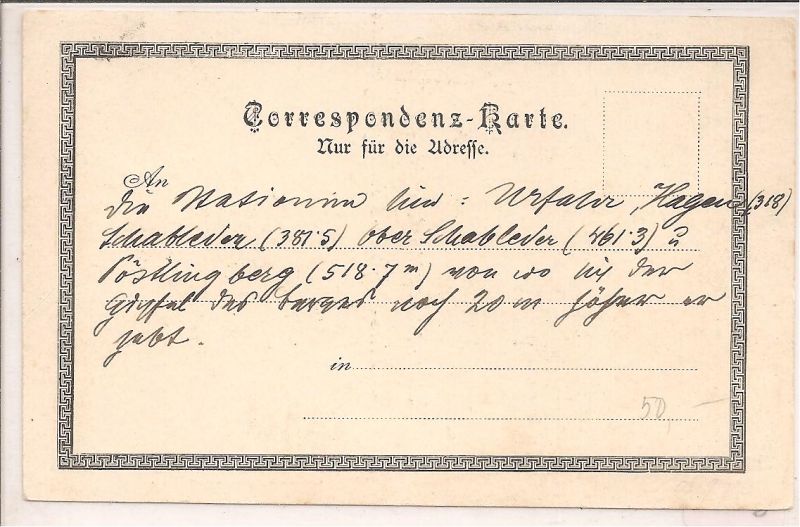 Correspondenz-Karte.
Nur für die Adresse.
An
die Stationen sind: Urfahr, Hagen (318)
Schableder (381·5) Ober Schableder (461·3) u
Pöstlingberg (518·7 m) von wo sich der
Gipfel des Berges noch 20 m höher er
hebt.
in
50,—